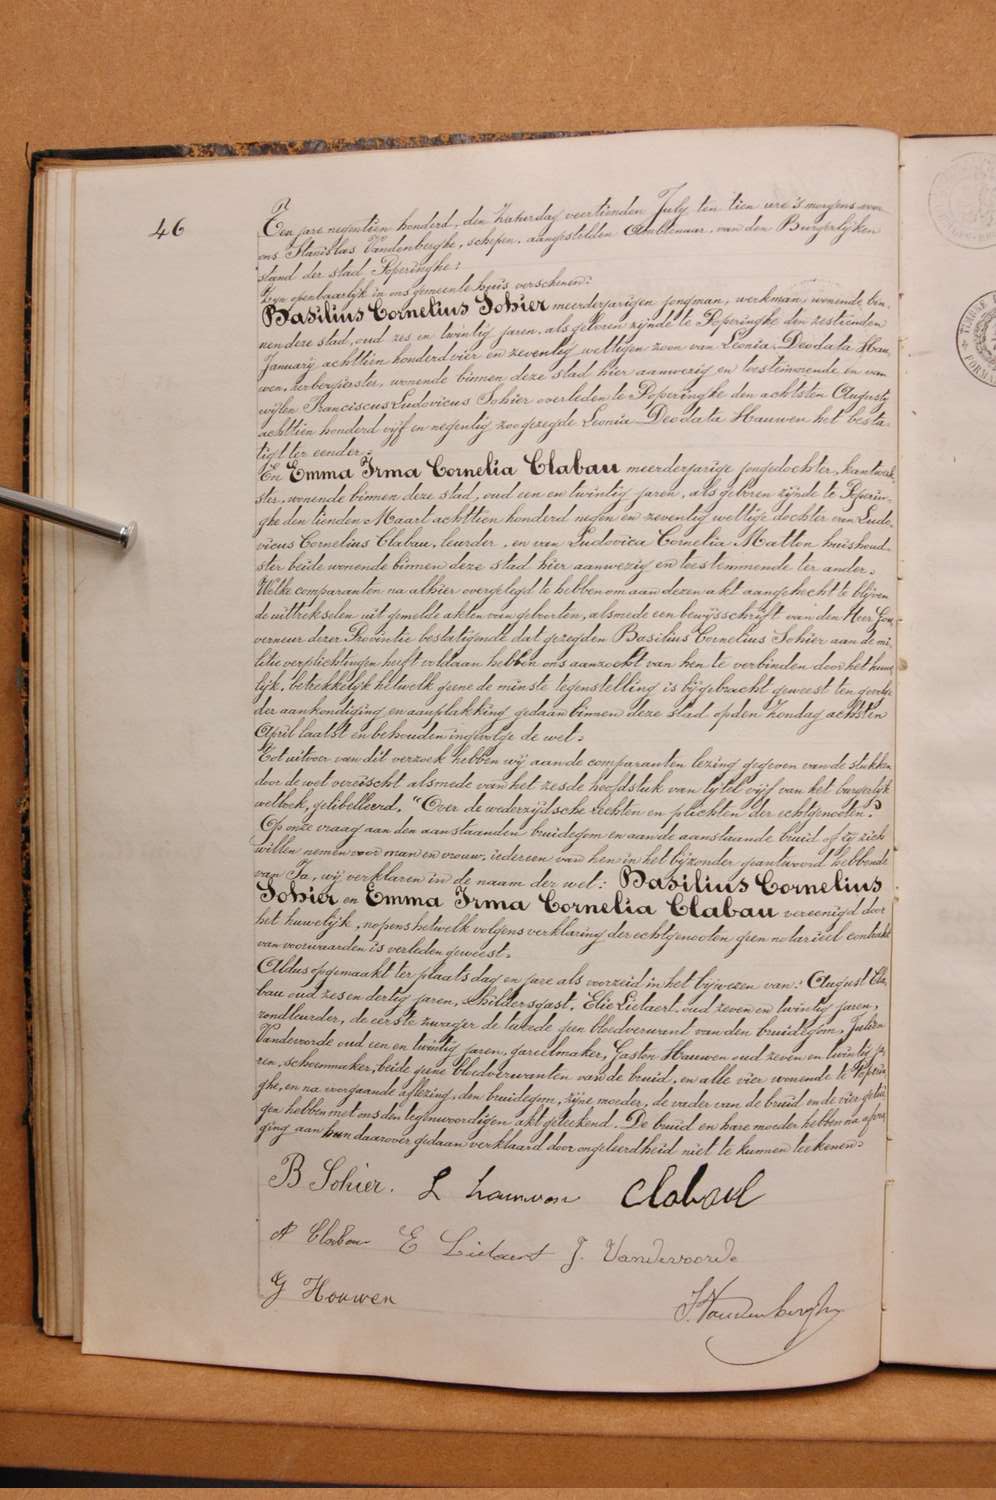 46
Ten jare negentien honderd, den Zaturdag veertienden July ten tien ure 's morgens voor
ons Stanislas Vandenberghe, schepen, aangestelden Ambtenaar, van den Burgerlijken
stand der stad Poperinghe:
Zyn openbaarlyk in ons gemeente huis verschenen:
Basilius Cornelius Sohier meerderjarigen jongman, werkman, wonende bin-
nen deze stad, oud zes en twintig jaren, als geboren zijnde te Poperinghe den zestienden
January achttien honderd vier en zeventig wettigen zoon van Leonia Deodata Hau-
wen, herbergierster, wonende binnen deze stad hier aanwezig en toestemmende en van
wijlen Franciscus Ludovicus Sohier overleden te Poperinghe den achtsten Augusty
achttien honderd vijf en negentig zoo gezegde Leonia Deodata Hauwen het besta-
tigt ter eender.
En Emma Irma Cornelia Clabau meerderjarige jongedochter, kantwerk-
ster, wonende binnen deze stad, oud een en twintig jaren, als geboren zijnde te Poperin-
ghe den tienden Maart achttien honderd negen en zeventig wettige dochter van Ludo-
vicus Cornelius Clabau, leurder, en van Ludovica Cornelia Matton huishoud-
ster beide wonende binnen deze stad hier aanwezig en toestemmende ter ander.
Welke comparanten na alhier overgelegd te hebben om aan dezen akt aangehecht te blijven
de uittrekselen uit gemelde akten van geboorten, alsmede een bewijsschrift van den Heer Gou-
verneur dezer Provintie bestatigende dat gezegden Basilius Cornelius Sohier aan de mi-
litie verplichtingen heeft voldaan hebben ons aanzocht van hen te verbinden door het huwe-
lijk, betrekkelijk hetwelk geene de minste tegenstelling is bijgebracht geweest ten gevolge
der aankondiging en aanplakking gedaan binnen deze stad op den Zondag achtsten
April laatst en behouden ingevolge de wet.
Tot uitvoer van dit verzoek hebben wij aan de comparanten lezing gegeven van de stukken
door de wet vereischt alsmede van het zesde hoofdstuk van tytel vijf van het burgerlijk
wetboek, getibelleerd. "Over de wederzijdsche rechten en plichten der echtgenooten."
Op onze vraag aan den aanstaanden bruidegom en aan de aanstaande bruid of zij zich
willen nemen voor man en vrouw, iedereen van hen in het bijzonder geantwoord hebbende
van Ja, wij verklaren in de naam der wet: Basilius Cornelius
Sohier en Emma Irma Cornelia Clabau vereenigd door
het huwelijk, nopens hetwelk volgens verklaring der echtgenooten geen notarieel contrakt
van voorwaarden is verleden geweest.
Aldus opgemaakt ter plaats dag en jare als voorzeid in het bijwezen van: August Cla-
bau oud zes en dertig jaren, schildersgast, Elie Lietaert oud zeven en twintig jaren,
rondleurder, de eerste zwager de tweede geen bloedverwant van den bruidegom, Julien
Vandevoorde oud een en twintig jaren, gareelmaker, Gaston Hauwen oud zeven en twintig ja-
ren, schoenmaker, beide geene bloedverwanten van de bruid, en alle vier wonende te Poperin-
ghe, en na voorgaande aflezing, den bruidegom, zijne moeder, de vader van de bruid en de vier getui-
gen hebben met ons den tegenwoordigen akt geteekend. De bruid en hare moeder hebben na afvra-
ging aan hun daarover gedaan verklaard door ongeleerdheid niet te kunnen teekenen.
B Sohier. L hauwen Clabaul
A Clabau E Lietaert J. Vandevoorde
G Houwen
S. Vandenberghe